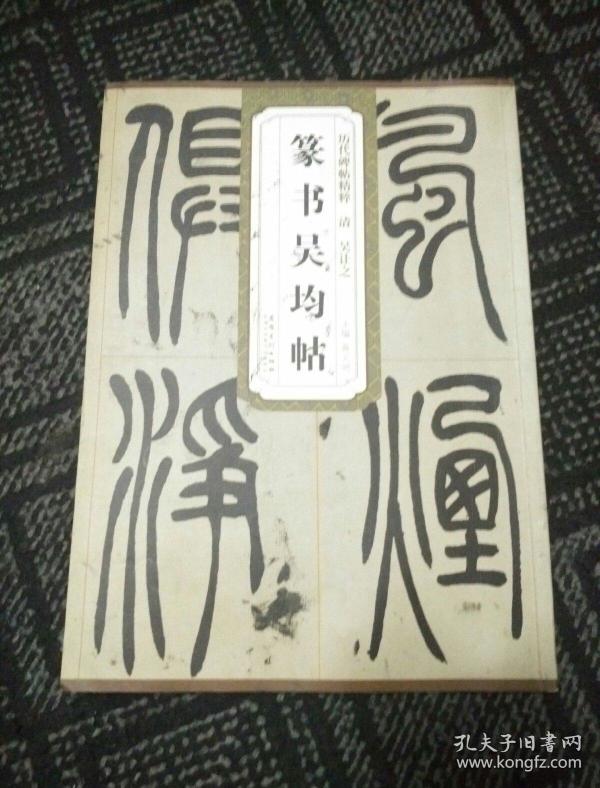 历代碑帖精粹 清 吴让之
篆书吴均帖
风烟
俱净
孔夫子旧书网
www.kongfz.com